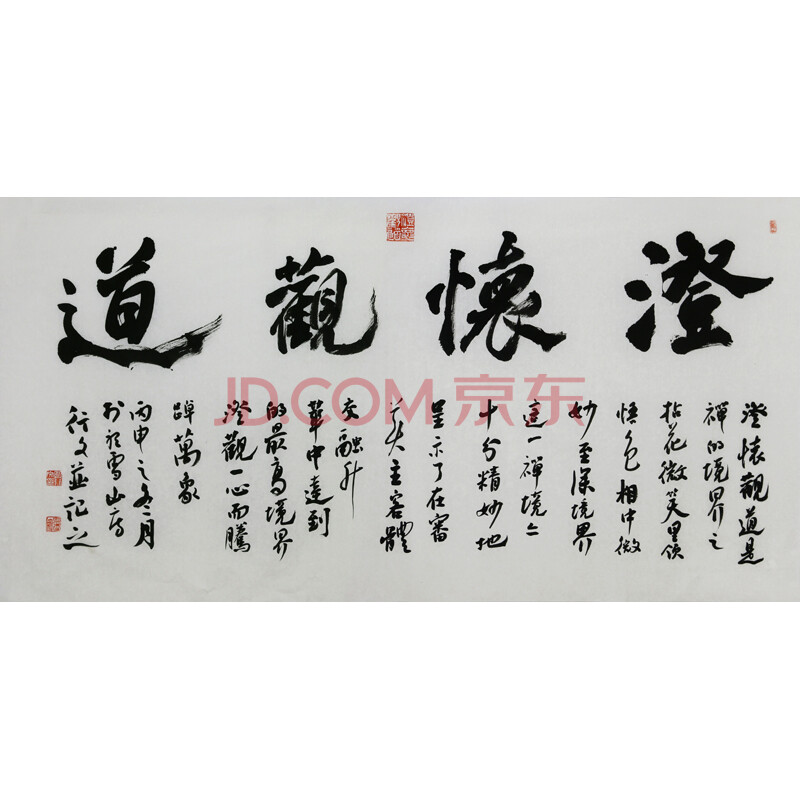 澄懷觀道
澄懷觀道是
禪的境界之
拈花微笑里领
悟色相中微
妙至深境界
這一禪境亦
十分精妙地
呈示了在審
美主客體
交融升
華中達到
的最高境界
澄觀一心而騰
踔萬象
丙申之冬月
於 雪山房
行文並記之
JD.COM 京东